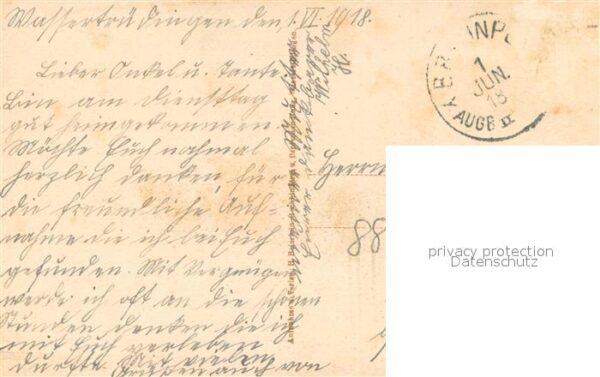 Wassertrüdingen den 1. VI. 1918.
Lieber Onkel u. Tante
Bin am Dienstag
gut heimgekommen.
Möchte Euch nochmal
herzlich danken, für
die freundliche Auf-
nahme die ich bei Euch
gefunden. Mit Vergnügen
werde ich oft an die schönen
Stunden denken die ich
mit Euch verleben
durfte. Mit vielen
Grüßen auch von
Euer dankbarer
Wilhelm
H.
1
JUN.
18
AUGB II
Herrn
88
privacy protection
Datenschutz